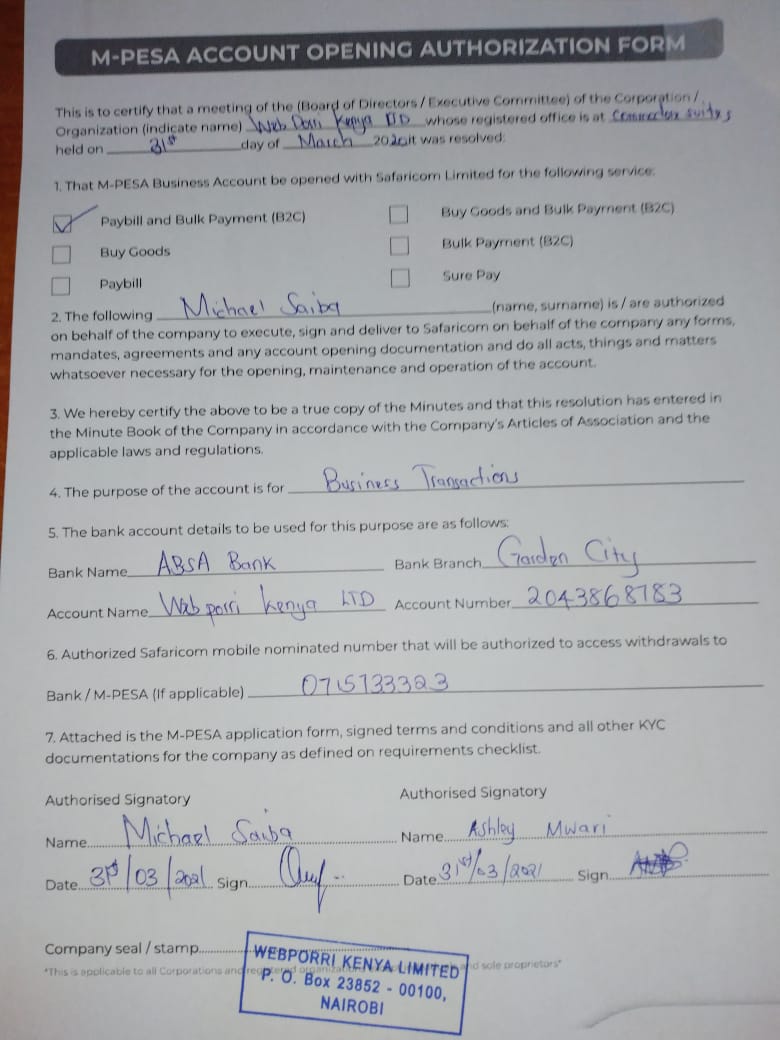 M-PESA ACCOUNT OPENING AUTHORIZATION FORM
This is to certify that a meeting of the (Board of Directors / Executive Committee) of the Corporation /
Organization (indicate name) Web Porri Kenya LTD whose registered office is at Commodore suites
held on 31st day of March 2020 it was resolved:
1. That M-PESA Business Account be opened with Safaricom Limited for the following service:
Paybill and Bulk Payment (B2C) Buy Goods and Bulk Payment (B2C)
Buy Goods Bulk Payment (B2C)
Paybill Sure Pay
2. The following Michael Saiba (name, surname) is / are authorized
on behalf of the company to execute, sign and deliver to Safaricom on behalf of the company any forms,
mandates, agreements and any account opening documentation and do all acts, things and matters
whatsoever necessary for the opening, maintenance and operation of the account.
3. We hereby certify the above to be a true copy of the Minutes and that this resolution has entered in
the Minute Book of the Company in accordance with the Company's Articles of Association and the
applicable laws and regulations.
4. The purpose of the account is for Business Transactions
5. The bank account details to be used for this purpose are as follows:
Bank Name ABSA Bank Bank Branch Garden City
Account Name Web porri Kenya LTD Account Number 2043868783
6. Authorized Safaricom mobile nominated number that will be authorized to access withdrawals to
Bank / M-PESA (If applicable) 0715733323
7. Attached is the M-PESA application form, signed terms and conditions and all other KYC
documentations for the company as defined on requirements checklist.
Authorised Signatory Authorised Signatory
Name Michael Saiba Name Ashley Mwari
Date 31st/03/2021 Sign Date 31st/03/2021 Sign
Company seal / stamp
*This is applicable to all Corporations and registered organizations and sole proprietors*
WEBPORRI KENYA LIMITED
P. O. Box 23852 - 00100,
NAIROBI